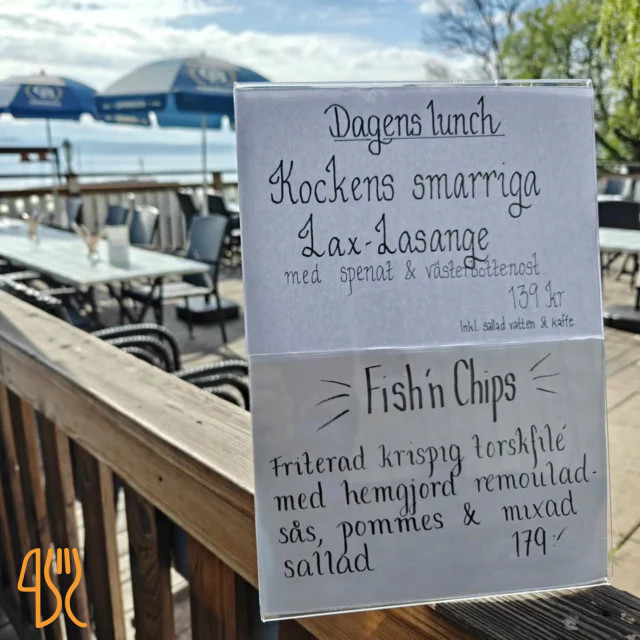 Dagens lunch
Kockens smarriga
Lax-Lasange
med spenat & västerbottenost.
139 kr
Inkl. sallad vatten & kaffe
Fish'n Chips
Friterad krispig torskfilé
med hemgjord remoulad-
sås, pommes & mixad
sallad 179:-